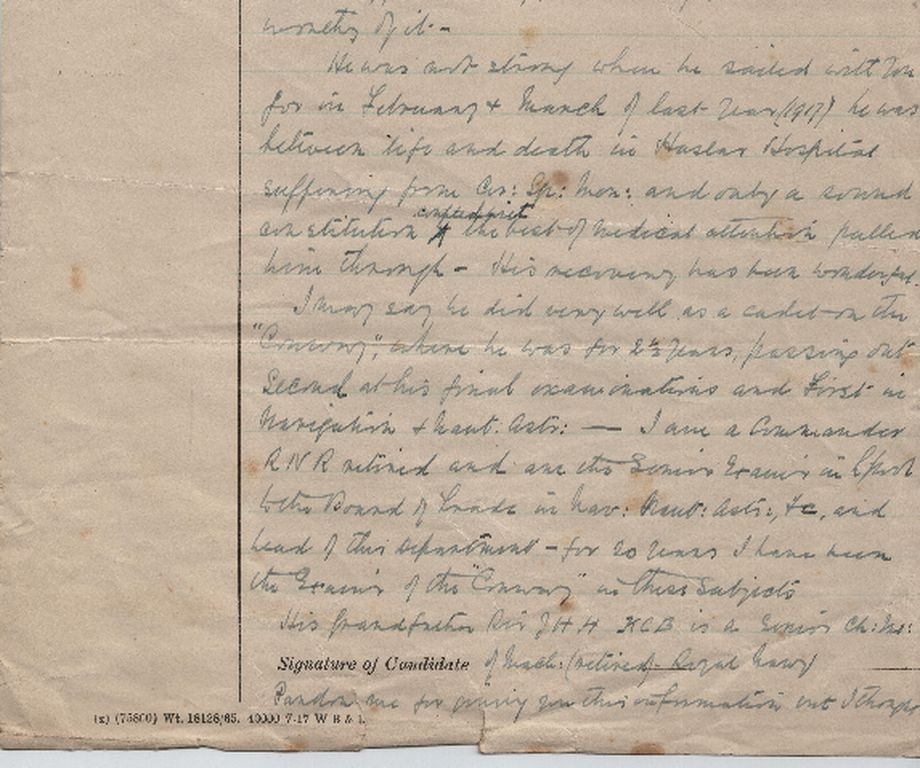 worthy of it -
He was not strong when he sailed with you
for in February & March of last year (1917) he was
between life and death in Haslar Hospital
suffering from Cer: Sp: Men: and only a sound
constitution the best of medical attention pulled
him through - His recovery has been wonderful.
I may say he did very well as a cadet on the
"Conway", where he was for 2½ years, passing out
Second at his final examinations and First in
Navigation & Naut: Astr: — I am a Commander
RNR retired and am the Senior Exam'r in L'pool
to the Board of Trade in Nav: Naut: Astr:, &c, and
head of this department - for 20 years I have been
the Exam'r of the "Conway" in these subjects
His Grandfather Sir J H H KCB is a Senior Ch: In:
Signature of Candidate of Mach: (retired) - Royal Navy
Pardon me for giving you this information but I
(x) (75800) Wt. 18128/65. 40000 7-17 W B & L